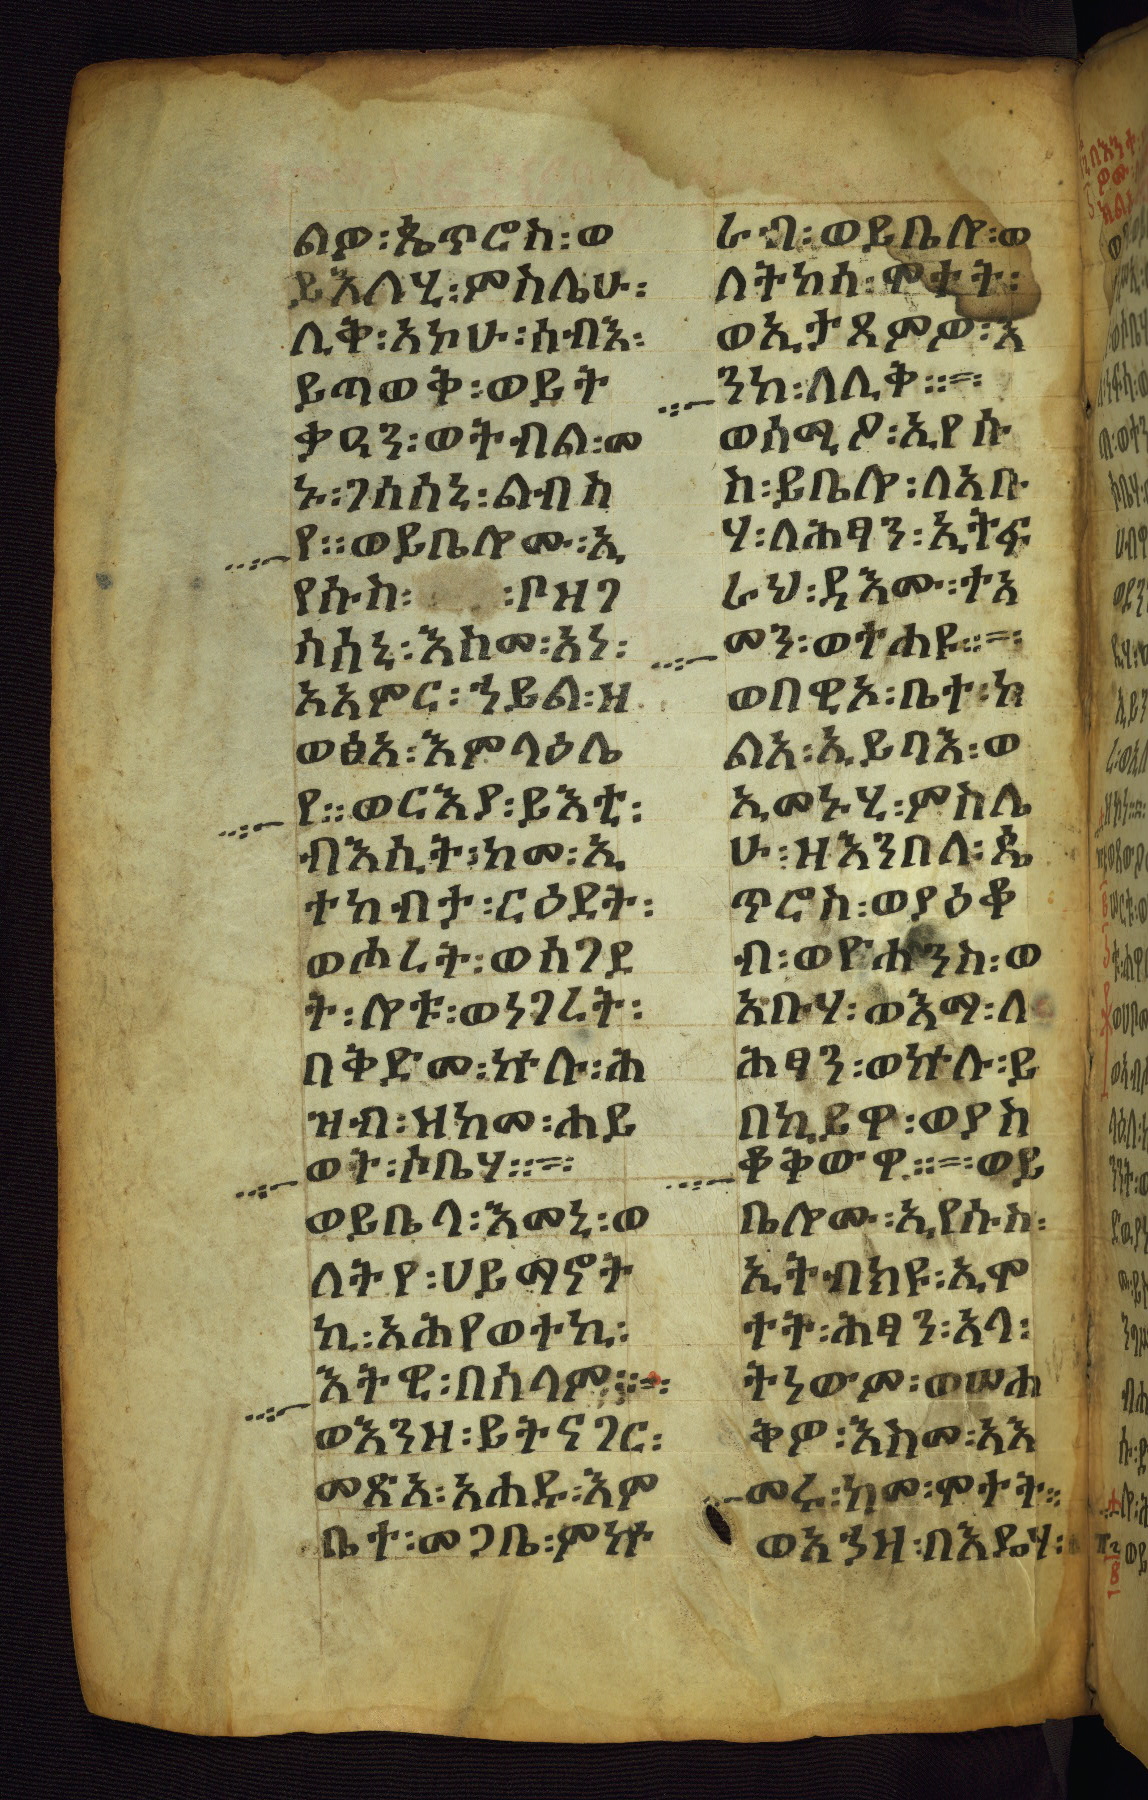 ልዎ፡ጴጥሮስ፡ወ
ይእሉሂ፡ምስሌሁ፡
ሊቅ፡እኮሁ፡ሰብእ፡
ይጣወቅ፡ወይት
ቃዳን፡ወትብል፡መ
ኑ፡ገሰሰኒ፡ልብስ
የ፡፡ወይቤሎሙ፡ኢ
የሱስ፡ ፡ቦዘገ
ሰሰኒ፡እስመ፡አነ፡
አአምር፡ኀይል፡ዘ
ወፅአ፡እምላዕሌ
የ፡፡ወርእያ፡ይእቲ፡
ብእሲት፡ከመ፡ኢ
ተከብታ፡ርዕደት፡
ወሖረት፡ወሰገደ
ት፡ሎቱ፡ወነገረት፡
በቅድመ፡ኵሉ፡ሕ
ዝብ፡ዝከመ፡ሐይ
ወት፡ሶቤሃ፡፡=፡
ወይቤላ፡እመኒ፡ወ
ለትየ፡ሀይማኖት
ኪ፡አሕየወተኪ፡
እትዊ፡በሰላም፡፡=፡
ወእንዘ፡ይትናገር፡
መጽአ፡አሐዱ፡እም
ቤተ፡መጋቤ፡ምኵ
ራብ፡ወይቤሎ፡ወ
ለትከሰ፡ሞተት፡
ወኢታጻምዎ፡እ
ንከ፡ለሊቅ፡፡=፡
ወሰሚዖ፡ኢየሱ
ስ፡ይቤሎ፡ለአቡ
ሃ፡ለሕፃን፡ኢትፍ
ራህ፡ዳእሙ፡ተአ
መን፡ወተሐዩ፡፡=፡
ወበዊኦ፡ቤተ፡ከ
ልአ፡ኢይባእ፡ወ
ኢመኑሂ፡ምስሌ
ሁ፡ዘእንበለ፡ጴ
ጥሮስ፡ወያዕቆ
ብ፡ወዮሐንስ፡ወ
አቡሃ፡ወእማ፡ለ
ሕፃን፡ወኵሉ፡ይ
በኪይዋ፡ወያስ
ቆቅውዋ፡፡=፡ወይ
ቤሎሙ፡ኢየሱስ፡
ኢትብክዩ፡ኢሞ
ተት፡ሕፃን፡አላ፡
ትነውም፡ወሠሐ
ቅዎ፡እስመ፡አእ
መሩ፡ከመ፡ሞተት፡፡
ወአኀዘ፡በእዴሃ፡